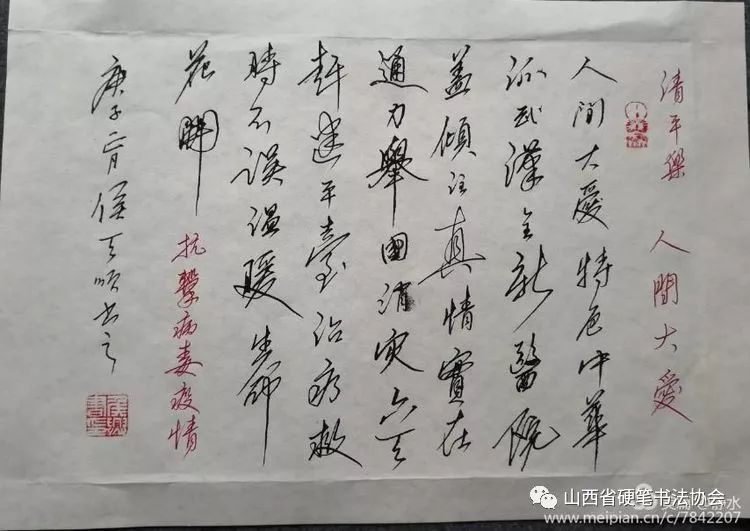 清平樂 人間大愛
人間大愛特色中華
派武漢全新醫院
蓋傾注真情實在
通力舉國消灾六天
建平臺治疗救
時不誤温暖生命
花開 抗擊病毒疫情
庚子二月侯天順书之
山西省硬笔书法协会
www.meipian.cn/c/7842207